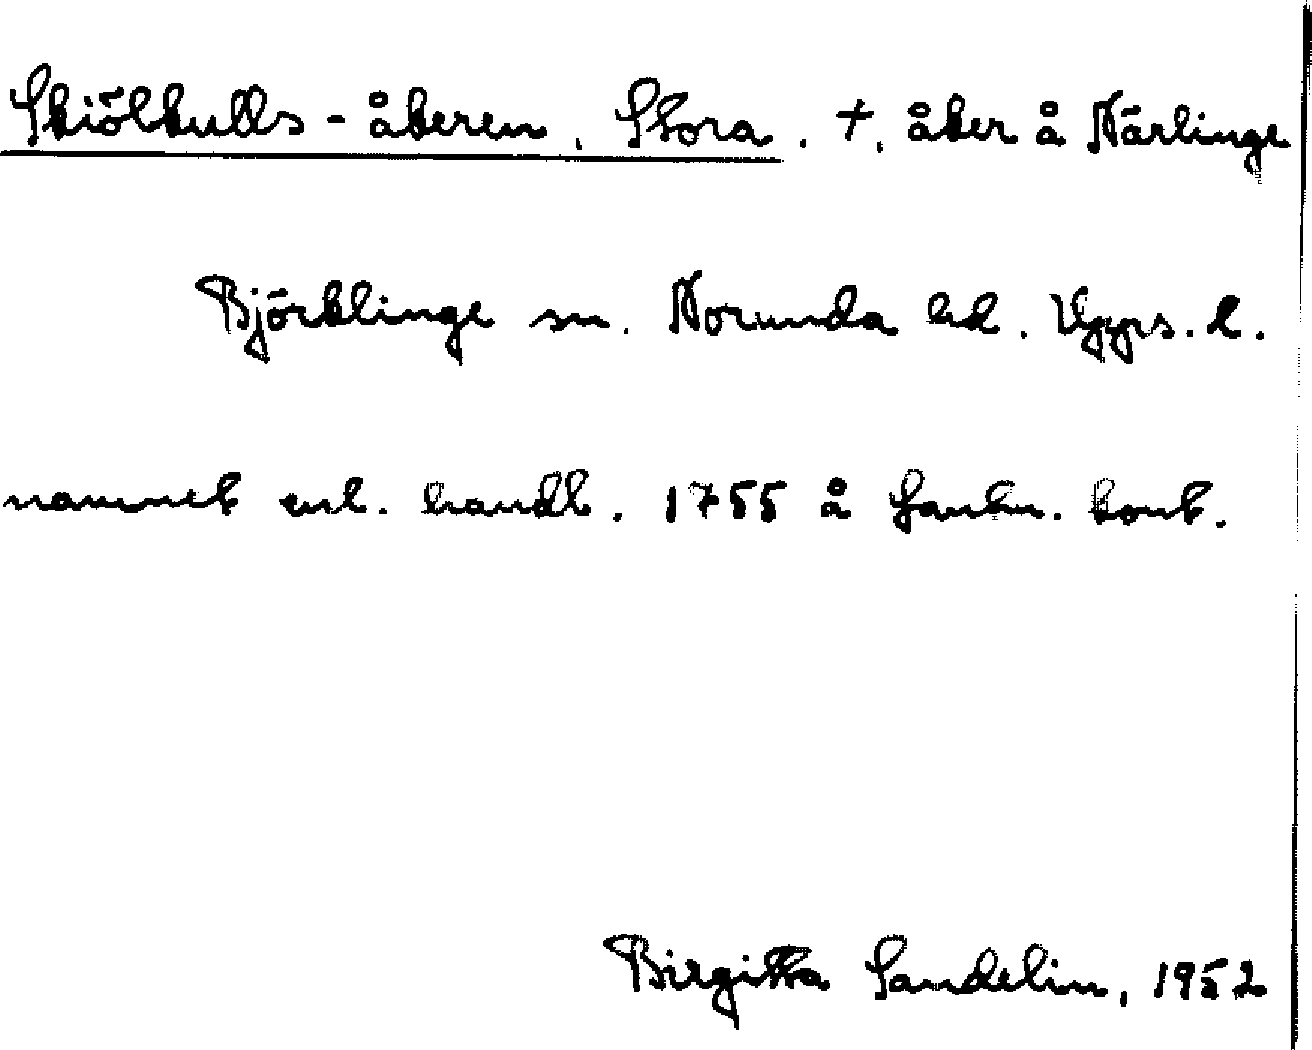 Skiölkulls-åkeren, Stora. †. åker å Närlinge
Björklinge sn. Norunda hd. Upps. l.
namnet enl. handl. 1755 å Lantm. kont.
Birgitta Sandelin, 1952